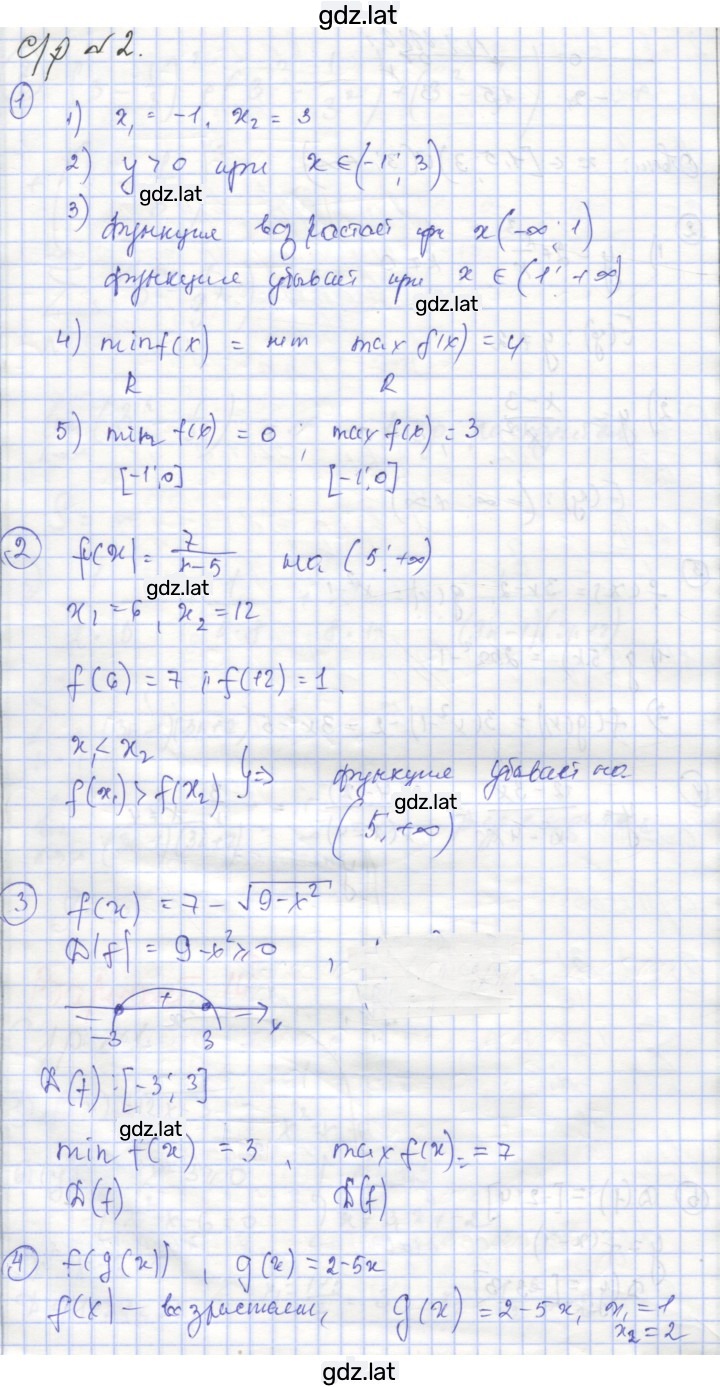 gdz.lat
С/р №2.
① 1) x₁ = -1, x₂ = 3
2) y > 0 при x ∈ (-1; 3)
gdz.lat
3) функция возрастает при x (-∞; 1)
функция убывает при x ∈ (1; +∞)
gdz.lat
4) min f(x) = нет max f(x) = 4
R R
5) min f(x) = 0; max f(x) = 3
[-1; 0] [-1; 0]
② f(x) = 7/(x-5) на (5; +∞)
gdz.lat
x₁ = 6, x₂ = 12
f(6) = 7; f(12) = 1.
x₁ < x₂
f(x₁) > f(x₂) } => функция убывает на
gdz.lat
(5; +∞)
③ f(x) = 7 - √(9-x²)
D(f) = 9-x² ≥ 0,
- + - x
-3 3
D(f): [-3; 3]
gdz.lat
min f(x) = 3, max f(x) = = 7
D(f) D(f)
④ f(g(x)), g(x) = 2-5x
f(x) - возрастает, g(x) = 2-5x, x₁ = 1
x₂ = 2
gdz.lat